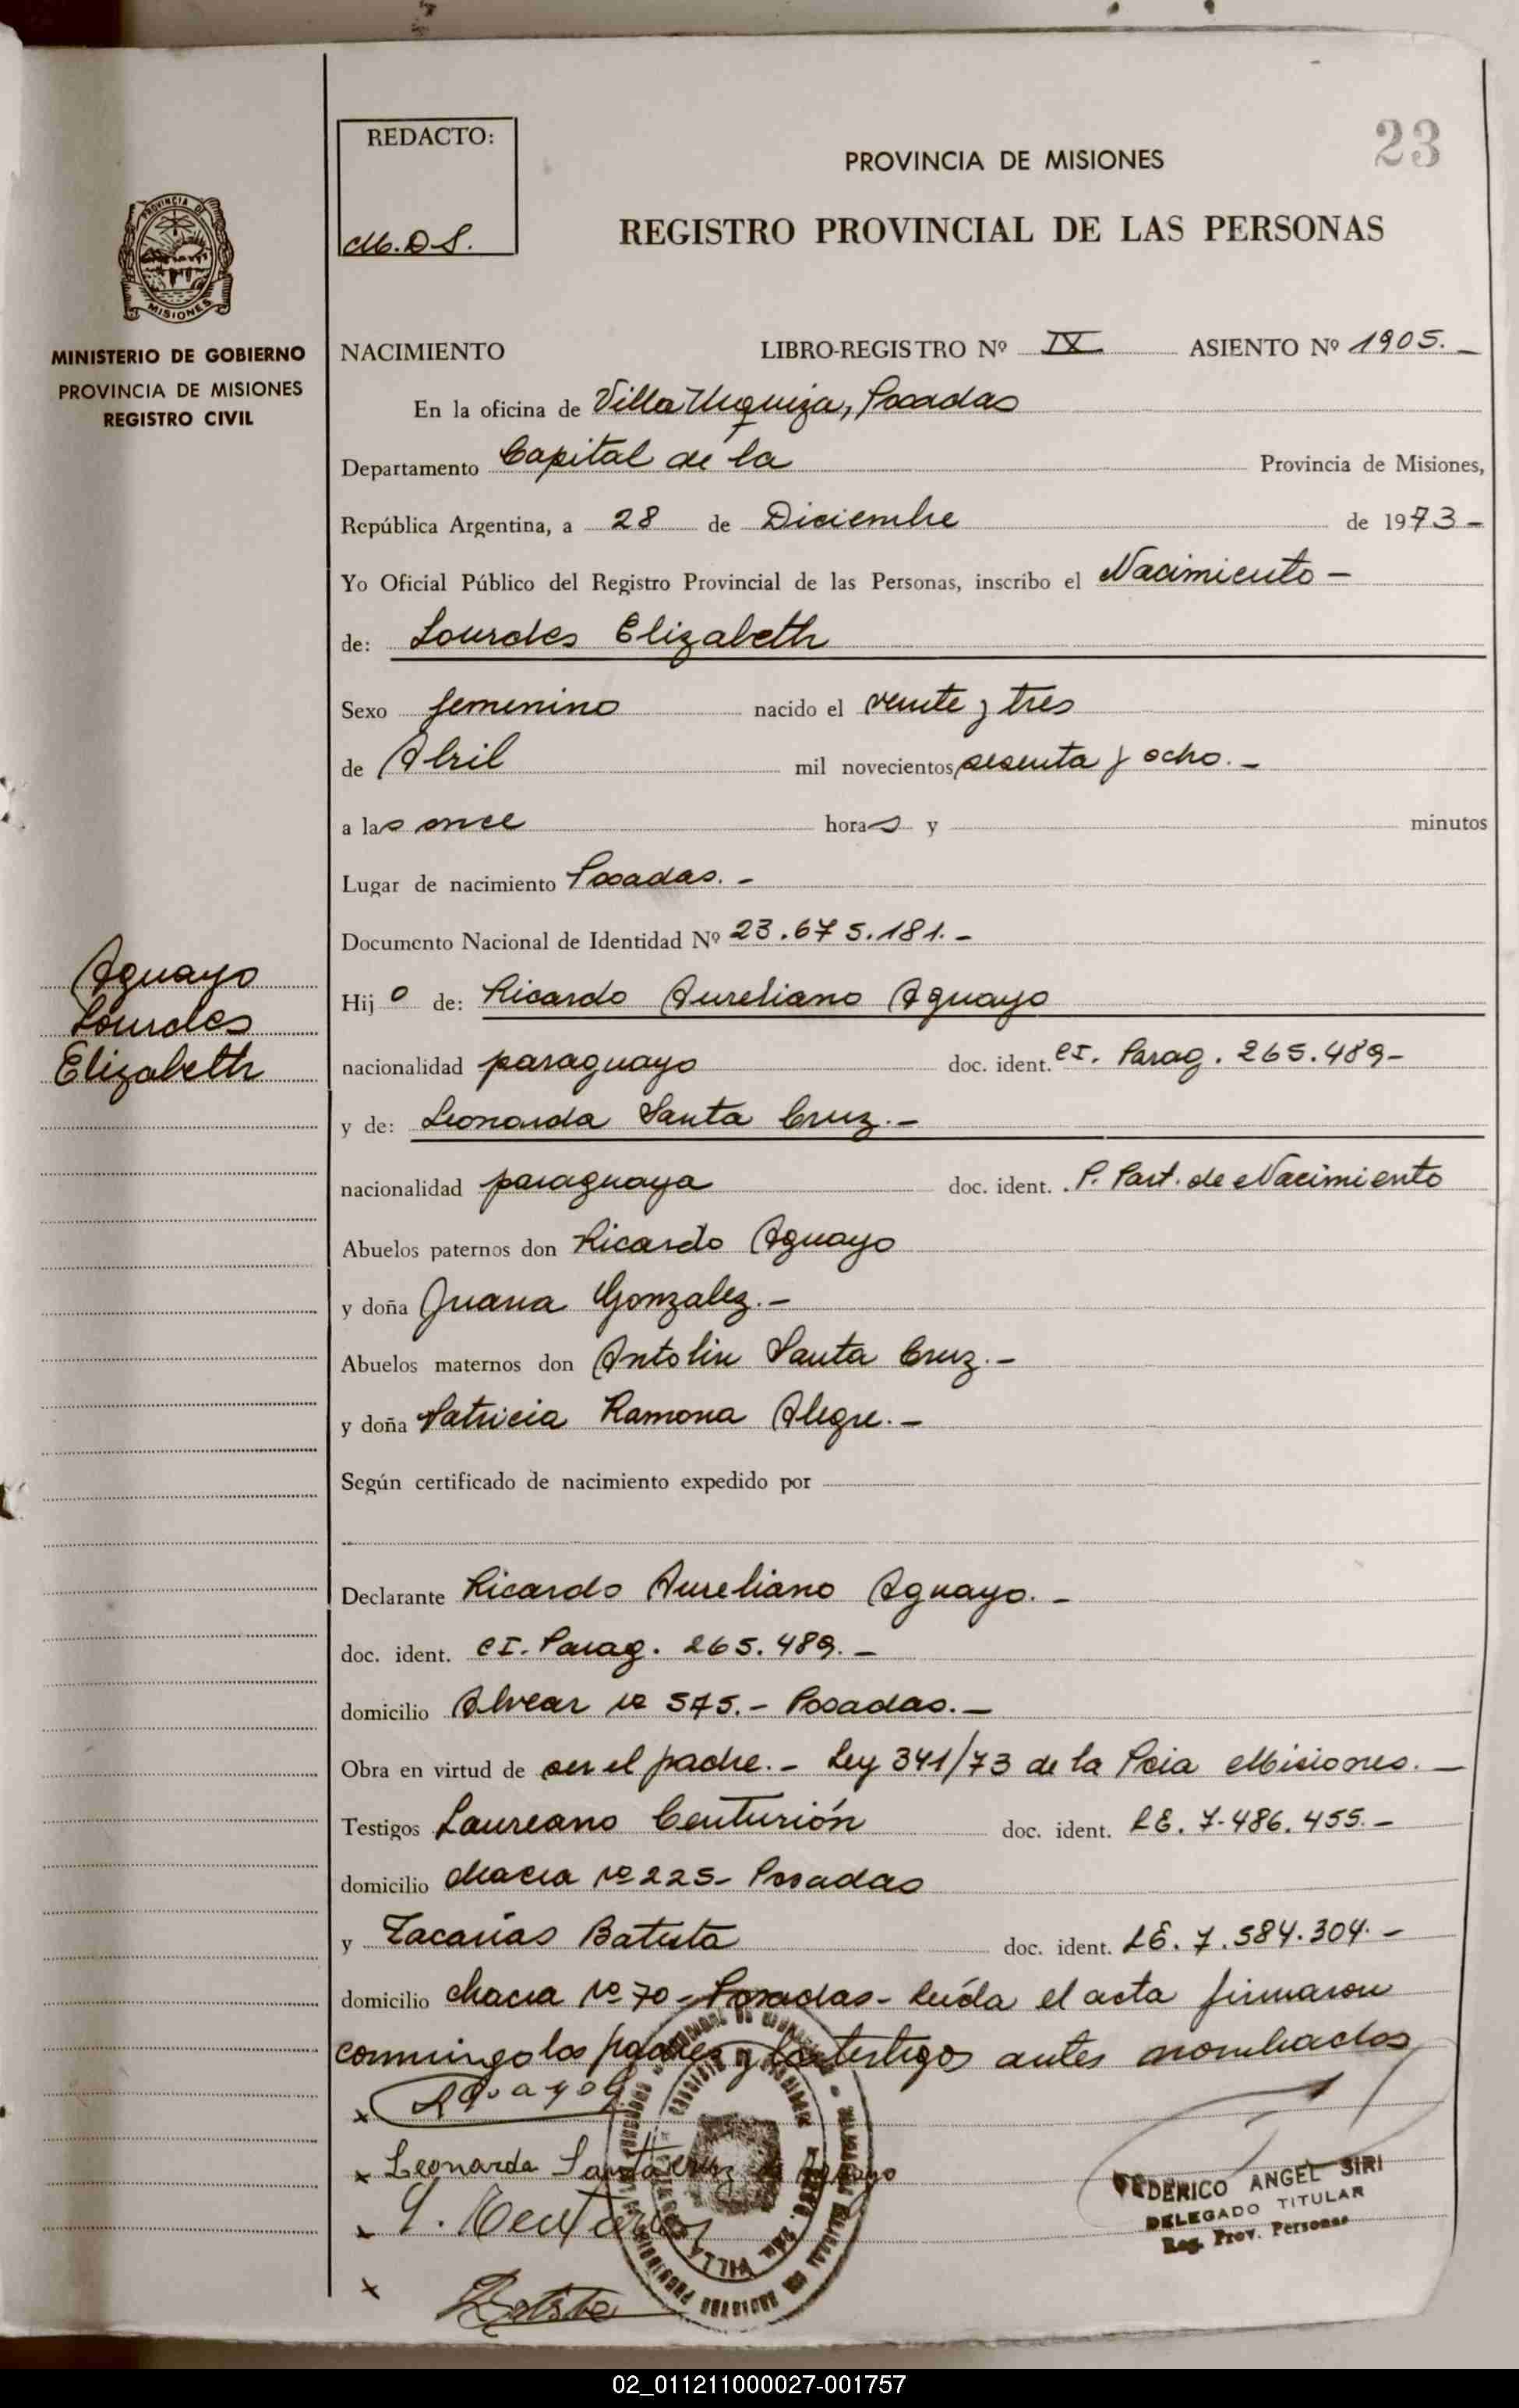 23
REDACTO:
M.D.S.
PROVINCIA DE MISIONES
REGISTRO PROVINCIAL DE LAS PERSONAS
PROVINCIA DE
MISIONES
MINISTERIO DE GOBIERNO
PROVINCIA DE MISIONES
REGISTRO CIVIL
NACIMIENTO LIBRO-REGISTRO Nº IX ASIENTO Nº 1905.-
En la oficina de Villa Urquiza, Posadas
Departamento Capital de la Provincia de Misiones,
República Argentina, a 28 de Diciembre de 1973-
Yo Oficial Público del Registro Provincial de las Personas, inscribo el Nacimiento-
de: Lourdes Elizabeth
Sexo femenino nacido el veinte y tres
de Abril mil novecientos sesenta y ocho.-
a las once horas y minutos
Lugar de nacimiento Posadas.-
Documento Nacional de Identidad Nº 23.675.181.-
Aguayo
Lourdes
Elizabeth
Hijo de: Ricardo Aureliano Aguayo
nacionalidad paraguayo doc. ident. CI. Parag. 265.489-
y de: Leonarda Santa Cruz.-
nacionalidad paraguaya doc. ident. P. Part. de Nacimiento
Abuelos paternos don Ricardo Aguayo
y doña Juana Gonzalez.-
Abuelos maternos don Antolin Santa Cruz.-
y doña Patricia Ramona Alegre.-
Según certificado de nacimiento expedido por
Declarante Ricardo Aureliano Aguayo.-
doc. ident. CI. Parag. 265.489.-
domicilio Alvear Nº 575.- Posadas.-
Obra en virtud de ser el padre.- Ley 341/73 de la Pcia Misiones.-
Testigos Laureano Centurión doc. ident. LE. 7.486.455.-
domicilio chacra Nº 225- Posadas
y Zacarías Batista doc. ident. LE. 7.584.304.-
domicilio chacra Nº 70- Posadas- leída el acta firmaron
conmigo los padres y los testigos antes nombrados
x Leonarda Santa Cruz de Aguayo
x
x
VILLA
FEDERICO ANGEL SIRI
DELEGADO TITULAR
Reg. Prov. Personas
02_011211000027-001757